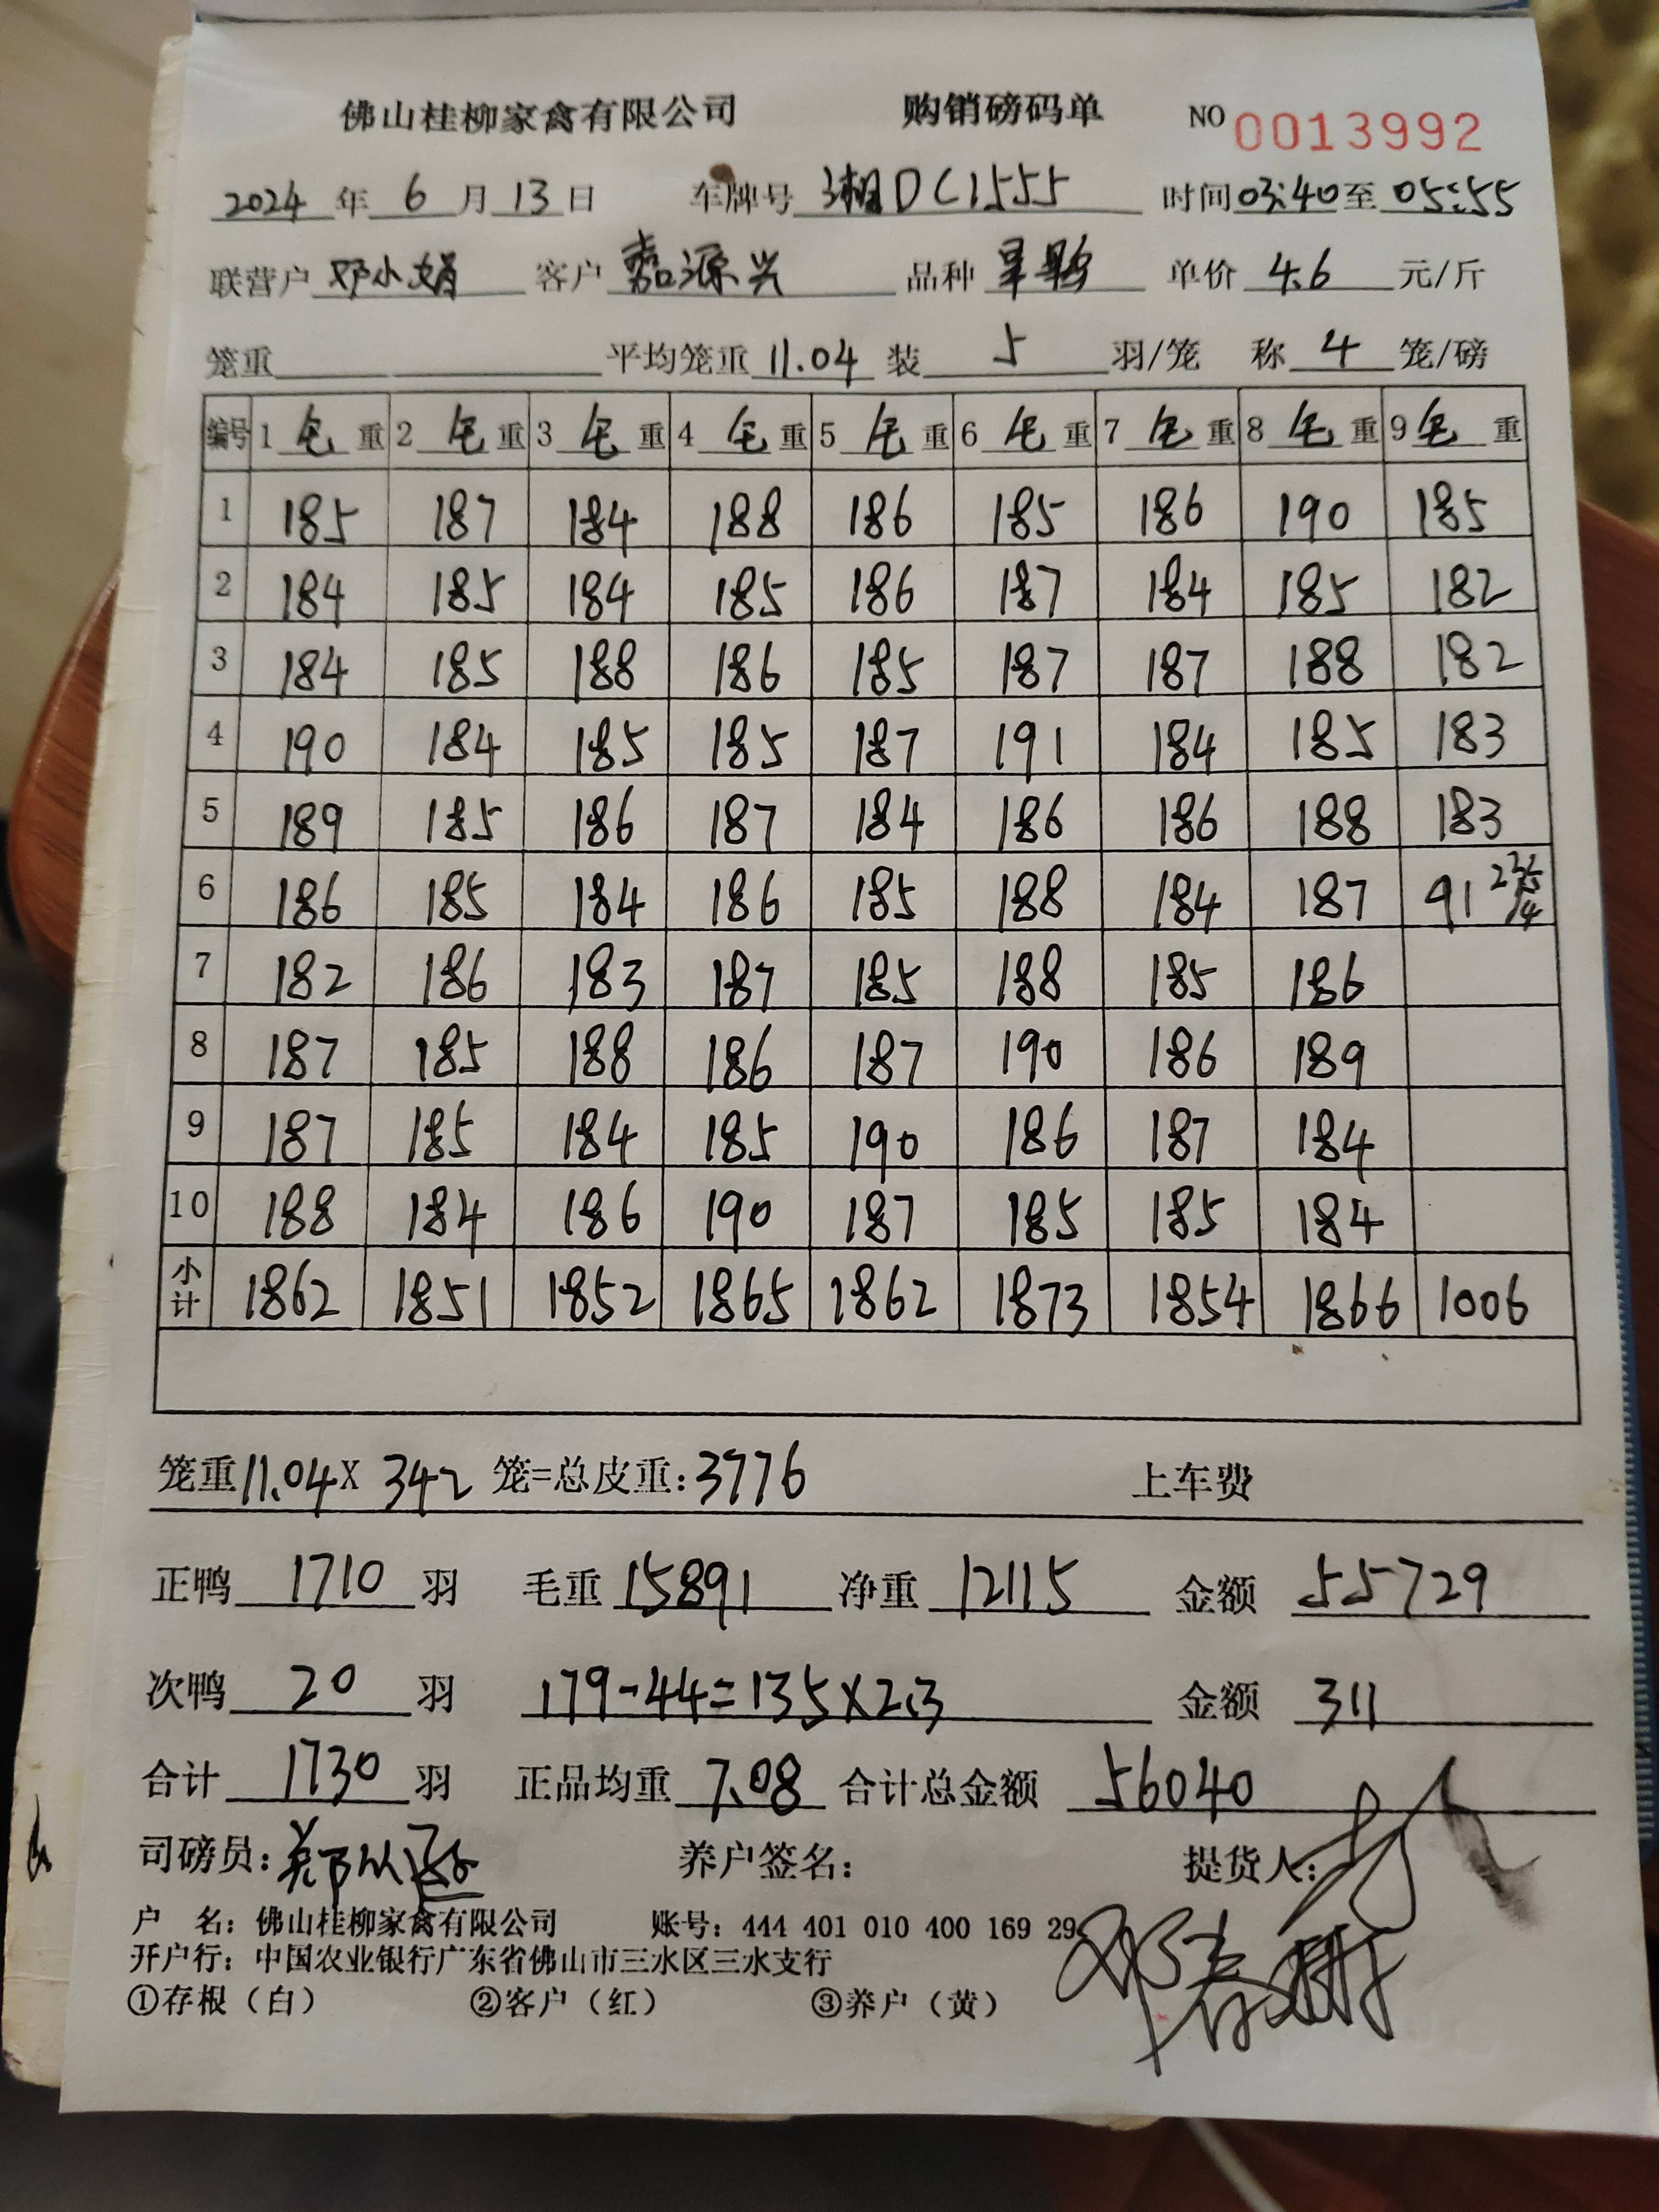 佛山桂柳家禽有限公司 购销磅码单 NO 0013992
2024 年 6 月 13 日 车牌号 湘DC1555 时间 03:40 至 05:55
联营户 邓小娟 客户 嘉源兴 品种 单价 4.6 元/斤
笼重 平均笼重 11.04 装 5 羽/笼 称 4 笼/磅
编号 1 毛 重 2 毛 重 3 毛 重 4 毛 重 5 毛 重 6 毛 重 7 毛 重 8 毛 重 9 毛 重
1 185 187 184 188 186 185 186 190 185
2 184 185 184 185 186 187 184 185 182
3 184 185 188 186 185 187 187 188 182
4 190 184 185 185 187 191 184 185 183
5 189 185 186 187 184 186 186 188 183
6 186 185 184 186 185 188 184 187 91
7 182 186 183 187 185 188 185 186
8 187 185 188 186 187 190 186 189
9 187 185 184 185 190 186 187 184
10 188 184 186 190 187 185 185 184
小计 1862 1851 1852 1865 1862 1873 1854 1866 1006
笼重 11.04 X 342 笼=总皮重: 3776 上车费
正鸭 1710 羽 毛重 15891 净重 12115 金额 55729
次鸭 20 羽 179-44=135×2.3 金额 311
合计 1730 羽 正品均重 7.08 合计总金额 56040
司磅员: 养户签名: 提货人:
户 名: 佛山桂柳家禽有限公司 账号: 444 401 010 400 169 29
开户行: 中国农业银行广东省佛山市三水区三水支行
①存根（白） ②客户（红） ③养户（黄）